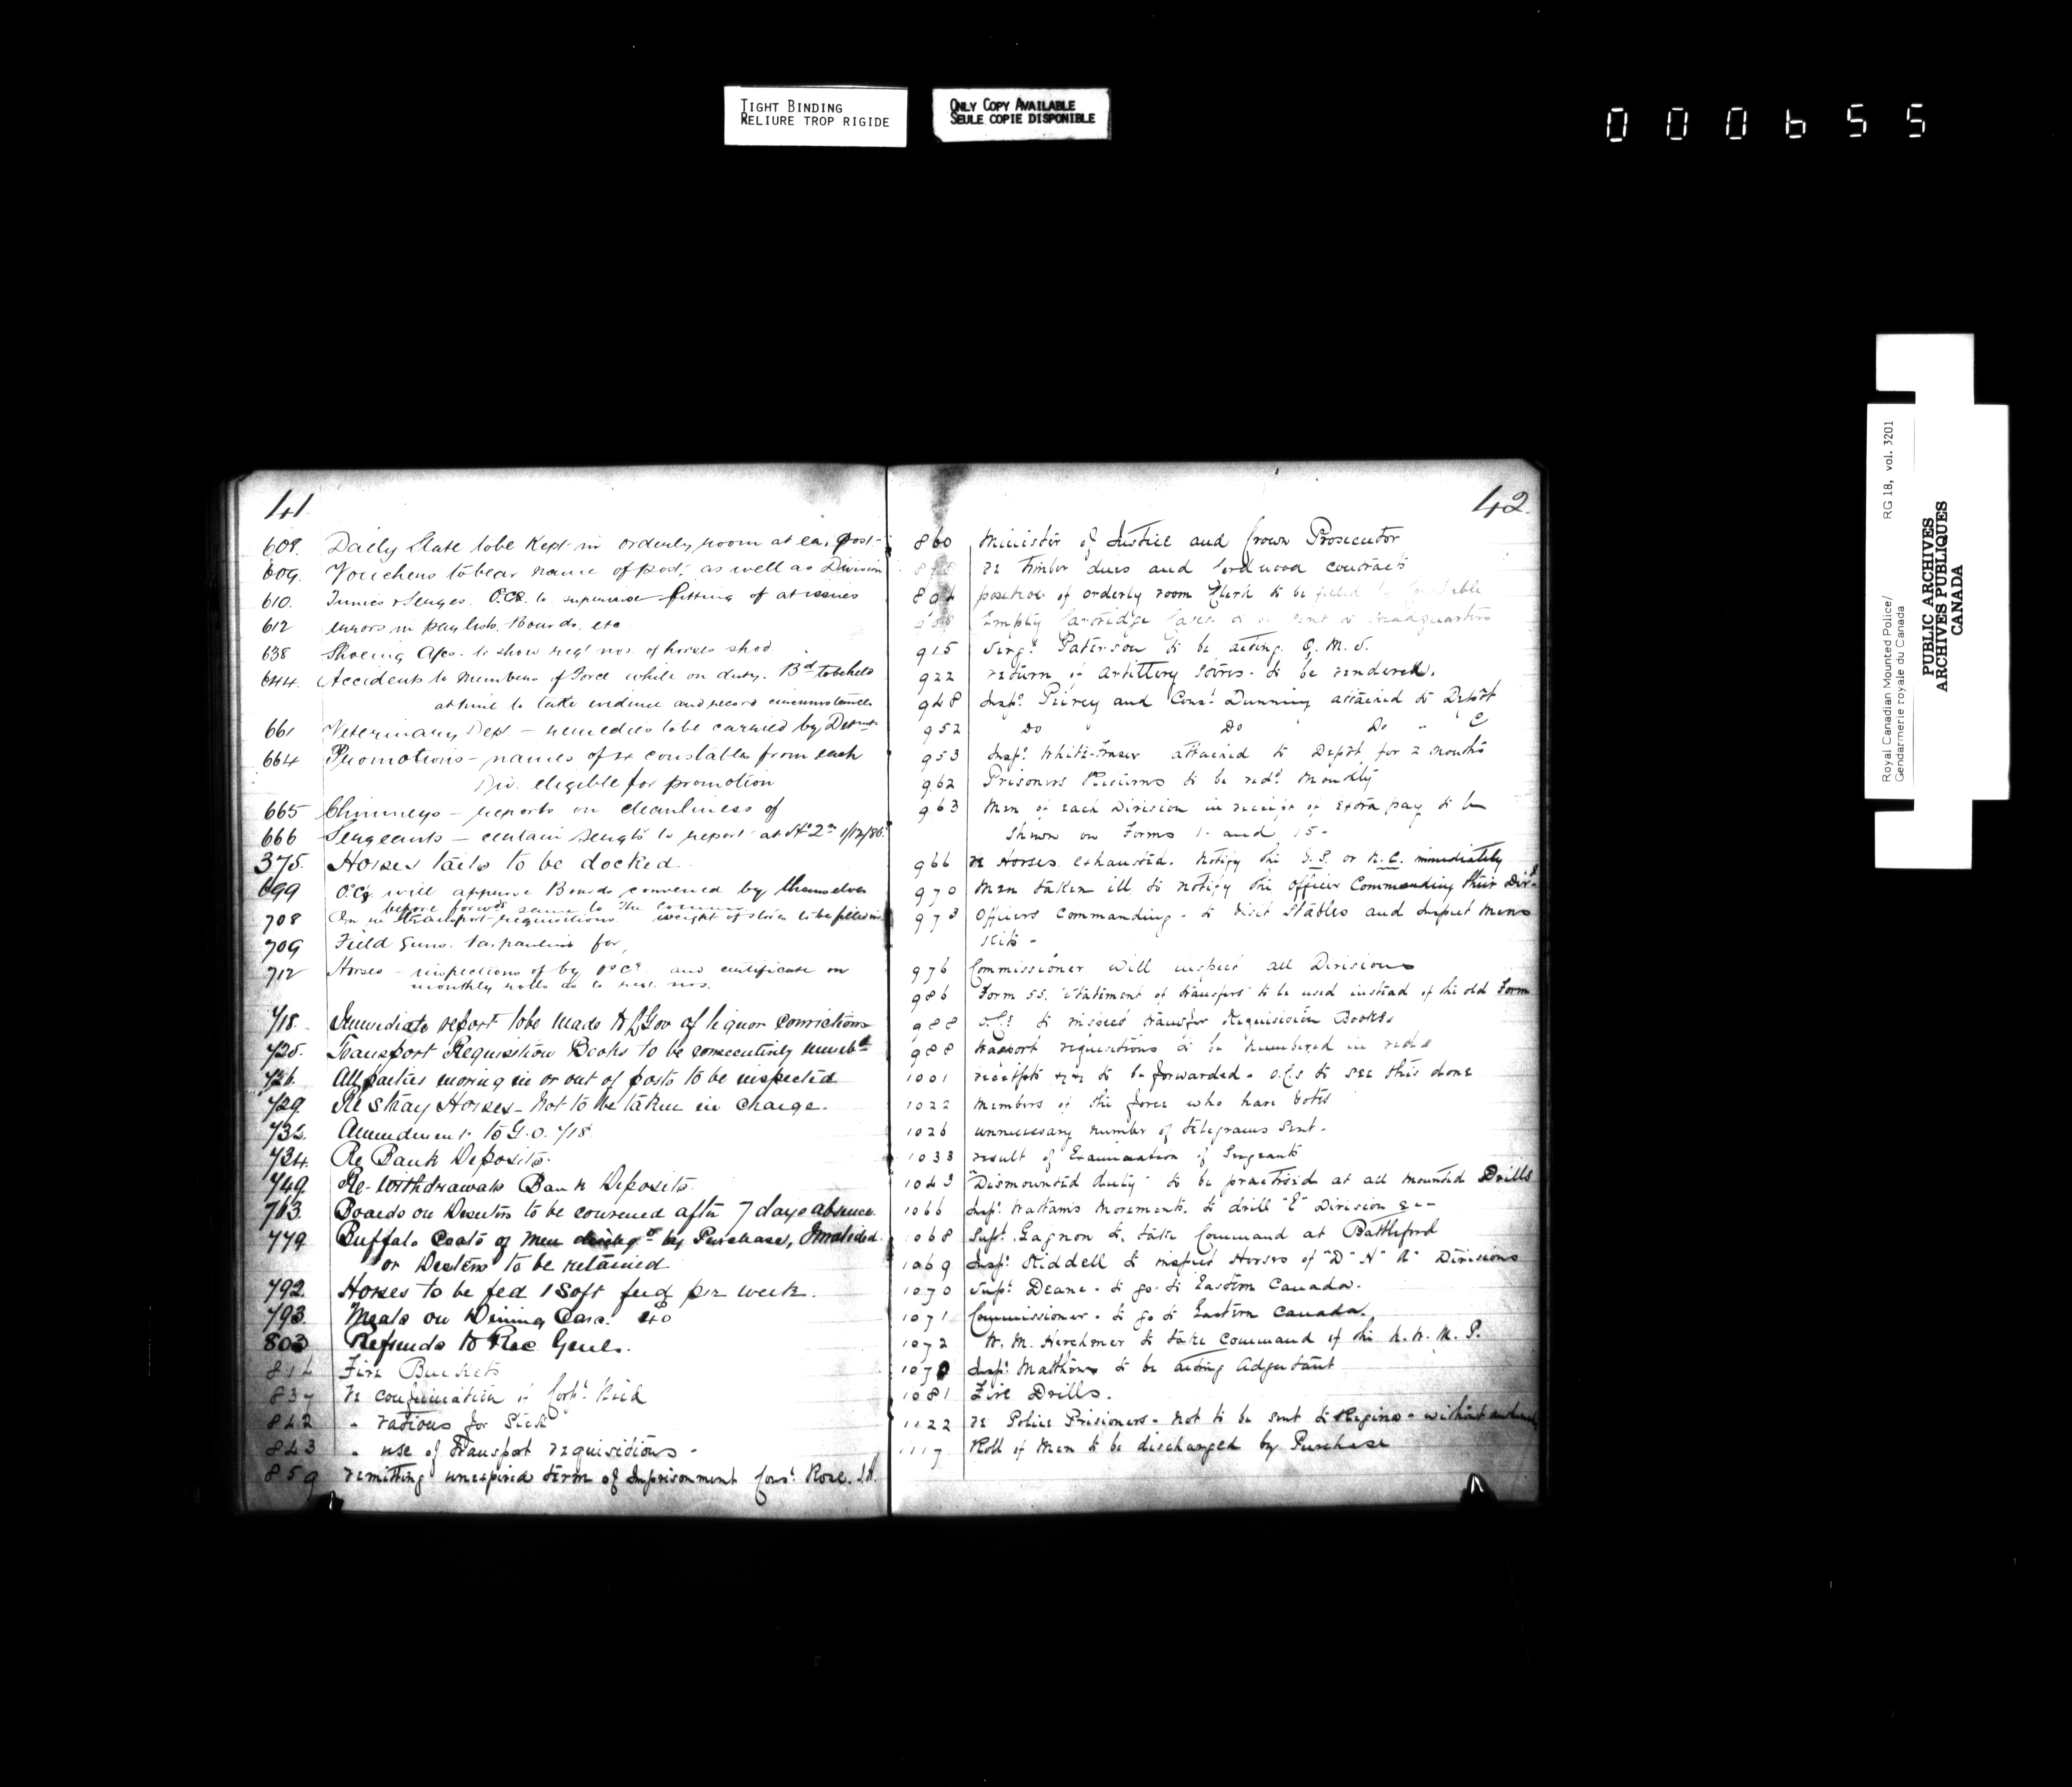 TIGHT BINDING
RELIURE TROP RIGIDE
ONLY COPY AVAILABLE
SEULE COPIE DISPONIBLE
000655
41.
608. Daily State to be Kept in orderly room at ea. post
609. Vouchers to bear name of post, as well as Division
610. Tunics & Serges. O.C.s. to supervise fitting of at issues
612 errors in pay lists. Boards. etc
638 Shoeing A/cs. to show regl nos. of horses shod
644. Accidents to Members of Force while on duty. Bd to be held
at time to take evidence and record circumstances
661 Veterinary Dept — remedies to be carried by
664 Promotions — names of 4 constables from each
Div. eligible for promotion
665 Chimneys — reports on cleanliness of
666 Sergeants — certain Sergts to report at Hd Qrs 1/12/86.
375. Horses tails to be docked
699 O.C.s. will approve Boards convened by themselves
before forwdg same to the
708 transport requisitions. weight of stores to be filled in
709 Field Guns. tarpaulins for,
712 Horses — inspections of by O.s.C. and certificate on
monthly rolls as to regl. nos.
718. Immediate report to be made to Lt Gov of liquor convictions
725. Transport Requisition Books to be consecutively numbd
726. All parties moving in or out of posts to be inspected
729. Re Stray Horses — Not to be taken in charge.
732. Amendment to G.O. 718
734. Re Bank Deposits.
749. Re- Withdrawals Bank Deposits
763. Boards on Deserters to be convened after 7 days absence
779 Buffalo Coats of Men by Purchase, Invalided
or Deserters to be retained
792. Horses to be fed 1 Soft feed per week.
793. Meals on Dining Cars.
803 Refunds to Rec Genl.
814 Fire Buckets
837 re confirmation of Corpl.
842 " rations for Sick
843 " use of Transport requisitions -
859 remitting unexpired term of Imprisonment Const. Rose.
42.
860 Minister of Justice and Crown Prosecutor
re Timber dues and Cordwood contracts
894 position of orderly room Clerk to be filled by Constable
Empty Cartridge Cases to be sent to Headquarters
915 Sergt. Paterson to be acting Q. M. S.
922 return of Artillery Stores. to be rendered.
948 Inspr. Piercy and Const. Dunning attached to Depôt
952 Do Do Do " E
953 Inspr. White-Fraser attached to Depôt for 2 months
962 Prisoners Returns to be rendd. Monthly
963 Men of each Division in receipt of extra pay to be
shown on Forms 1. and 15-
966 re Horses exhausted. Notify the or immediately
970 Men taken ill to notify the officer Commanding their Divn
973 Officers Commanding - to Visit Stables and Inspect Mens
Kits -
976 Commissioner will inspect all Divisions
986 Form 55. "Statement of transfers" to be used instead of the old Form
988 O.C.s to inspect transfer Requisition Books
988 transport requisitions to be numbered in red
1001 receipts to be forwarded - O.C.s to see this done
1022 Members of the force who have Votes
1026 unnecessary number of telegrams sent -
1033 result of Examination of Sergeants
1043 "Dismounted duty" to be practised at all mounted Drills
1066 Inspr. Wattams Movements. to drill "E" Division
1068 Supt. Gagnon to take Command at Battleford
1069 Inspr. Riddell to inspect Horses of "D" "H" "A" Divisions
1070 Supt. Deane - to go to Eastern Canada.
1071 Commissioner - to go to Eastern Canada.
1072 W. M. Herchmer to take Command of the N. W. M. P.
Inspr. Matthews to be acting Adjutant
1081 Fire Drills.
1122 re Police Prisoners - Not to be sent to Regina - without
1117. Roll of Men to be discharged by Purchase
Royal Canadian Mounted Police/
Gendarmerie royale du Canada
RG 18, vol. 3201
PUBLIC ARCHIVES
ARCHIVES PUBLIQUES
CANADA